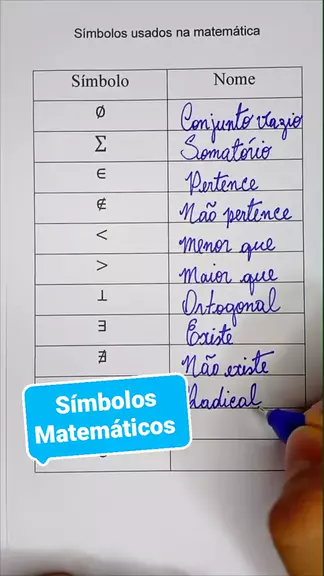 Símbolos usados na matemática
Símbolo Nome
∅ Conjunto vazio
∑ Somatório
∈ Pertence
∉ Não pertence
< Menor que
> Maior que
⊥ Ortogonal
∃ Existe
∄ Não existe
Radical
Símbolos
Matemáticos